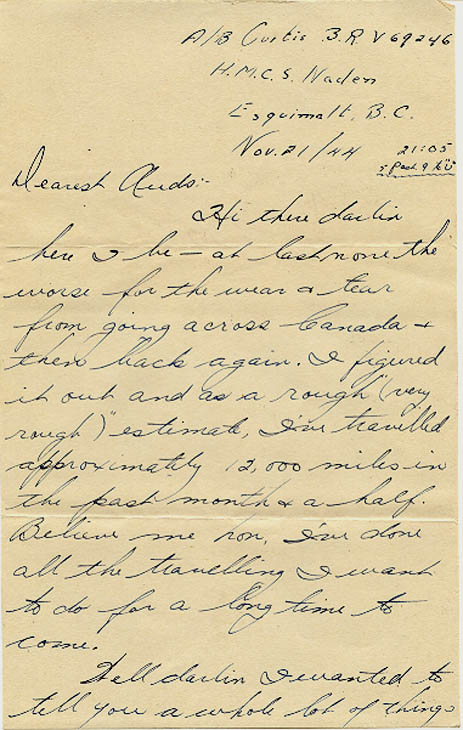 A/B Curtis B.R. V69246
H.M.C.S. Naden
Esquimalt, B.C.
Nov. 21/44
21:05
5 Past 9 to U
Dearest Auds:-
Hi there darlin
here I be - at last none the
worse for the wear & tear
from going across Canada &
then back again. I figured
it out and as a rough "(very
rough)" estimate, I've travelled
approximately 12,000 miles in
the past month & a half.
Believe me hon, I've done
all the travelling I want
to do for a long time to
come.
Well darlin I wanted to
tell you a whole lot of things